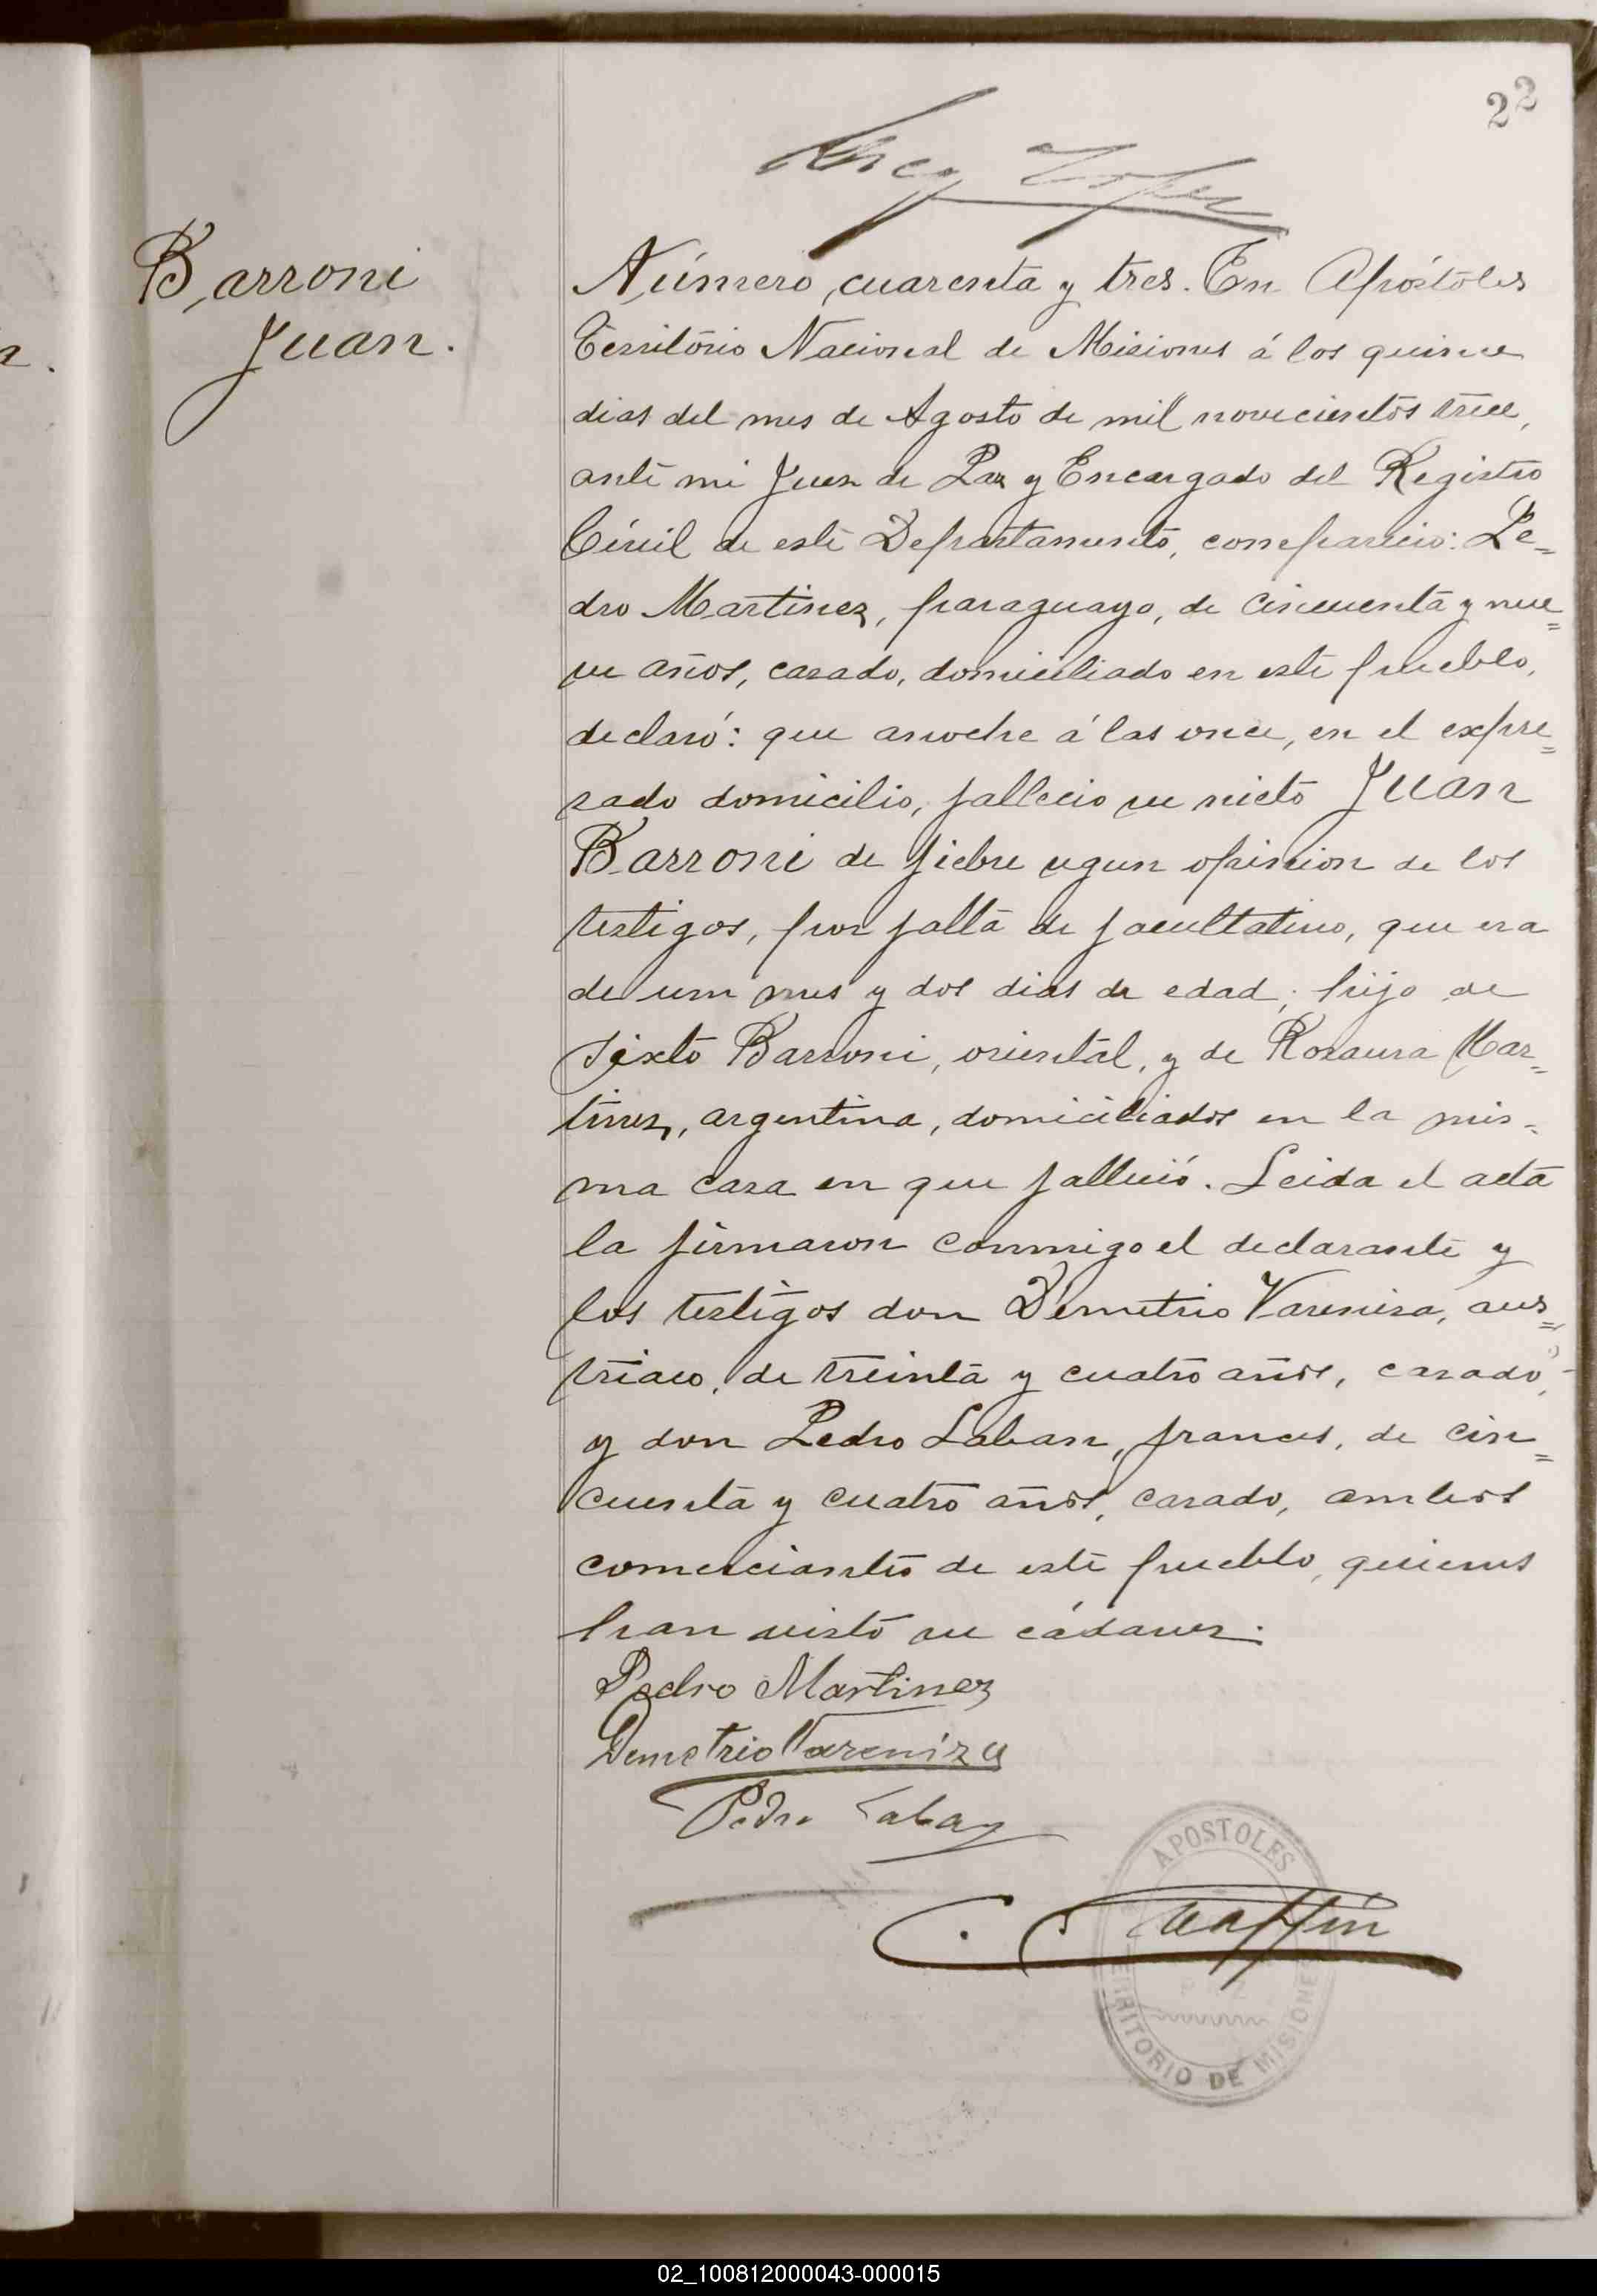 22
Barroni
Juan.
Número cuarenta y tres. En Apóstoles
Territorio Nacional de Misiones á los quince
dias del mes de Agosto de mil novecientos trece,
ante mi Juez de Paz y Encargado del Registro
Civil de este Departamento, comparecio: Pe=
dro Martinez, paraguayo, de cincuenta y nue=
ve años, casado, domiciliado en este pueblo,
declaró: que anoche á las once, en el expre=
sado domicilio, fallecio su nieto Juan
Barroni de fiebre segun opinion de los
testigos, por falta de facultativo, que era
de un mes y dos dias de edad; hijo de
Sixto Barroni, oriental, y de Rosaura Mar=
tinez, argentina, domiciliados en la mis=
ma casa en que falleció. Leida el acta
la firmaron conmigo el declarante y
los testigos don Demetrio Vareniza, aus=
triaco, de treinta y cuatro años, casado,
y don Pedro Laban, frances, de cin=
cuenta y cuatro años, casado, ambos
comerciantes de este pueblo, quienes
han visto su cádaver.
Pedro Martinez
Demetrio Vareniza
Pedro Laban
APOSTOLES
PAZ
TERRITORIO DE MISIONES
02_100812000043-000015